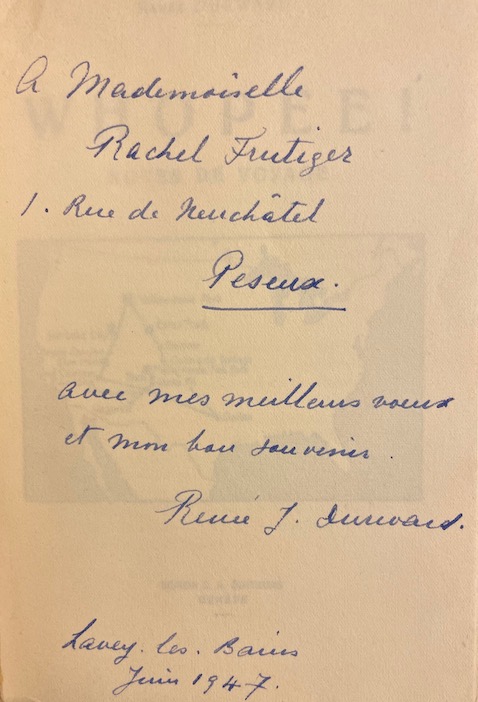 A Mademoiselle
WHOPEE!
Rachel Frutiger
DE VOYAGE
1. Rue de Neuchâtel
Peseux.
avec mes meilleurs voeux
et mon bon souvenir.
Renée J. Durward.
GENÈVE
Lavey. les. Bains
Juin 1947.